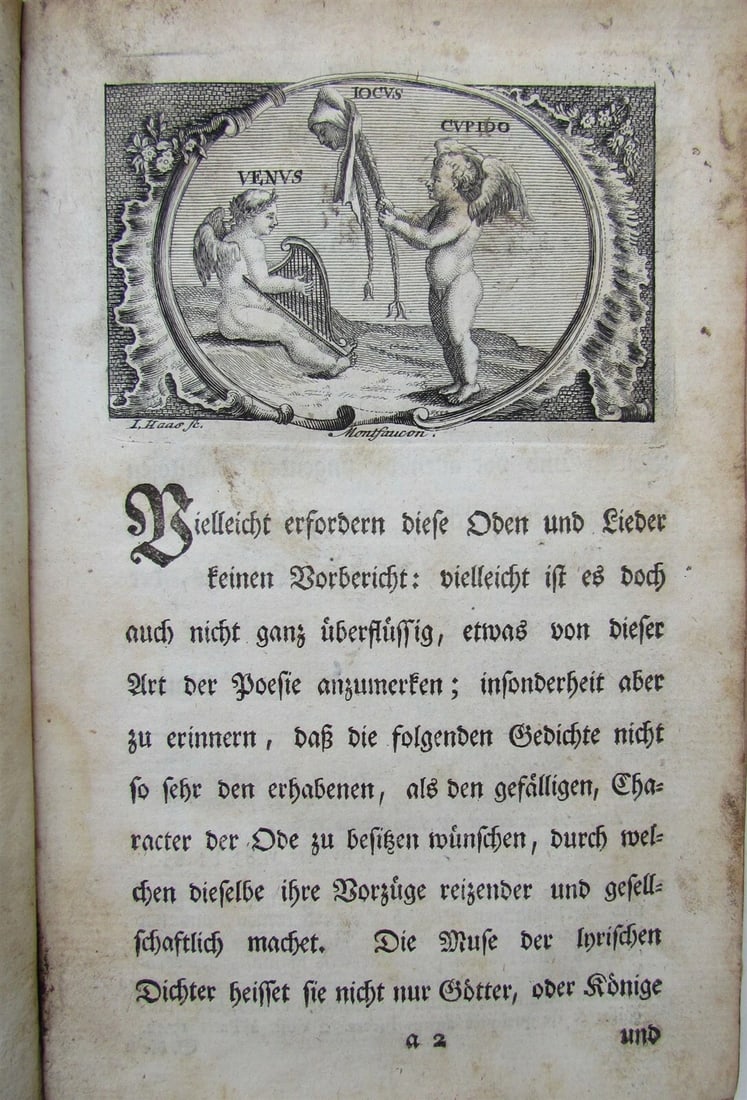 IOCVS
CVPIDO
VENVS
I. Haas sc.
Montfaucon.
Vielleicht erfordern diese Oden und Lieder
keinen Vorbericht: vielleicht ist es doch
auch nicht ganz überflüssig, etwas von dieser
Art der Poesie anzumerken; insonderheit aber
zu erinnern, daß die folgenden Gedichte nicht
so sehr den erhabenen, als den gefälligen, Cha=
racter der Ode zu besitzen wünschen, durch wel=
chen dieselbe ihre Vorzüge reizender und gesell=
schaftlich machet. Die Muse der lyrischen
Dichter heisset sie nicht nur Götter, oder Könige
a 2
und